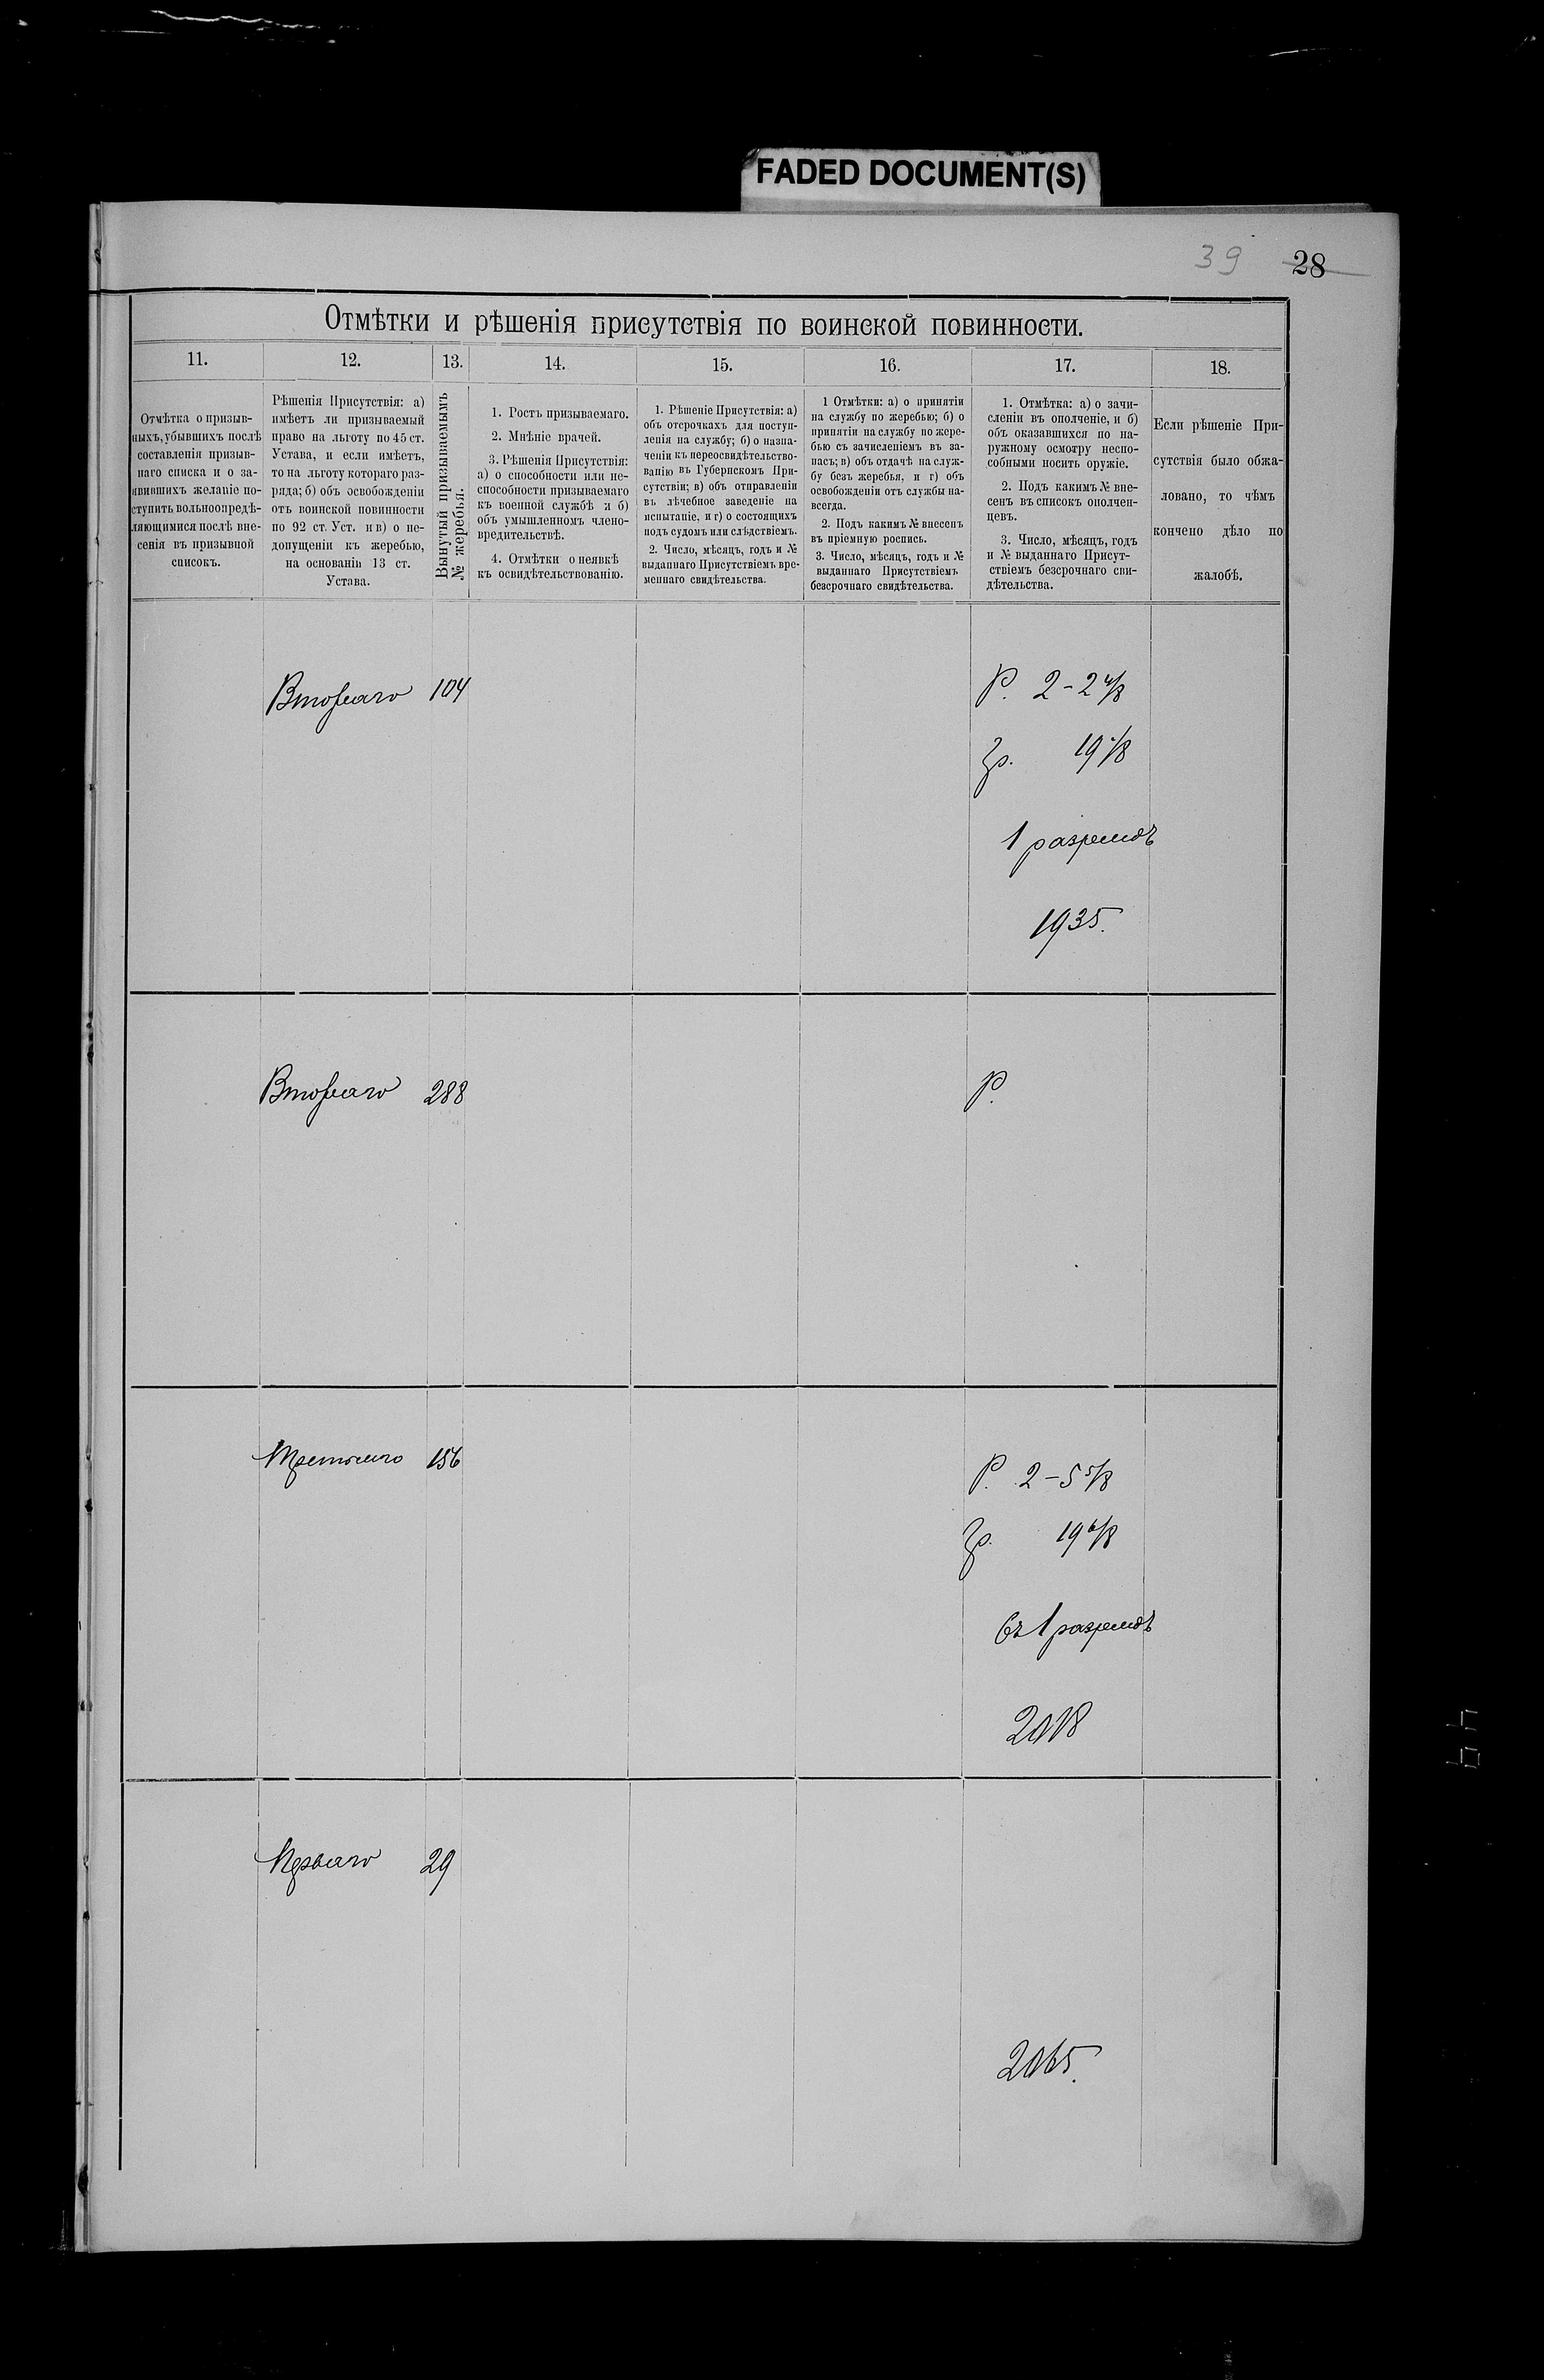 FADED DOCUMENT(S)
39 28
Отмѣтки и рѣшенія присутствія по воинской повинности.
11.
12.
13.
14.
15.
16.
17.
18.
Отмѣтка о призыв-
ныхъ, убывшихъ послѣ
составленія призыв-
наго списка и о за-
явившихъ желаніе по-
ступить вольноопредѣ-
ляющимися послѣ вне-
сенія въ призывной
списокъ.
Рѣшенія Присутствія: а)
имѣетъ ли призываемый
право на льготу по 45 ст.
Устава, и если имѣетъ,
то на льготу котораго раз-
ряда; б) объ освобожденіи
отъ воинской повинности
по 92 ст. Уст. и в) о не-
допущеніи къ жеребью,
на основаніи 13 ст.
Устава.
Вынутый призываемымъ
№ жеребья.
1. Ростъ призываемаго.
2. Мнѣніе врачей.
3. Рѣшенія Присутствія:
а) о способности или не-
способности призываемаго
къ военной службѣ и б)
объ умышленномъ члено-
вредительствѣ.
4. Отмѣтки о неявкѣ
къ освидѣтельствованію.
1. Рѣшеніе Присутствія: а)
объ отсрочкахъ для поступ-
ленія на службу; б) о назна-
ченіи къ переосвидѣтельство-
ванію въ Губернскомъ При-
сутствіи; в) объ отправленіи
въ лѣчебное заведеніе на
испытаніе, и г) о состоящихъ
подъ судомъ или слѣдствіемъ.
2. Число, мѣсяцъ, годъ и №
выданнаго Присутствіемъ вре-
меннаго свидѣтельства.
1 Отмѣтки: а) о принятіи
на службу по жеребью; б) о
принятіи на службу по жере-
бью съ зачисленіемъ въ за-
пасъ; в) объ отдачѣ на служ-
бу безъ жеребья, и г) объ
освобожденіи отъ службы на-
всегда.
2. Подъ какимъ № внесенъ
въ пріемную роспись.
3. Число, мѣсяцъ, годъ и №
выданнаго Присутствіемъ
безсрочнаго свидѣтельства.
1. Отмѣтка: а) о зачи-
сленіи въ ополченіе, и б)
объ оказавшихся по на-
ружному осмотру неспо-
собными носить оружіе.
2. Подъ какимъ № вне-
сенъ въ списокъ ополчен-
цевъ.
3. Число, мѣсяцъ, годъ
и № выданнаго Присут-
ствіемъ безсрочнаго сви-
дѣтельства.
Если рѣшеніе При-
сутствія было обжа-
ловано, то чѣмъ
кончено дѣло по
жалобѣ.
Втораго 104
Р. 2-2 4/8
Гр. 19
1 разрядъ
1935.
Втораго 288
Р.
Третьяго 156
Р. 2-5 5/8
Гр. 19 6/8
въ 1 разрядъ
2018
Перваго 29
2065.